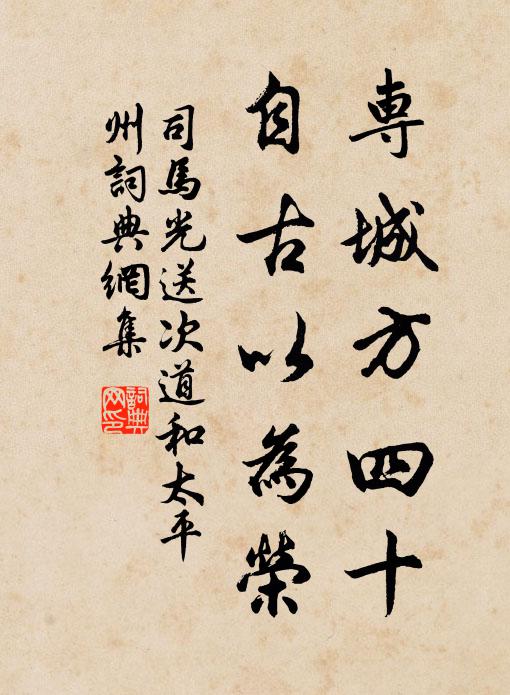 專城方四十
自古以為榮
司馬光送次道和太平
州詞典網集
詞典
网印